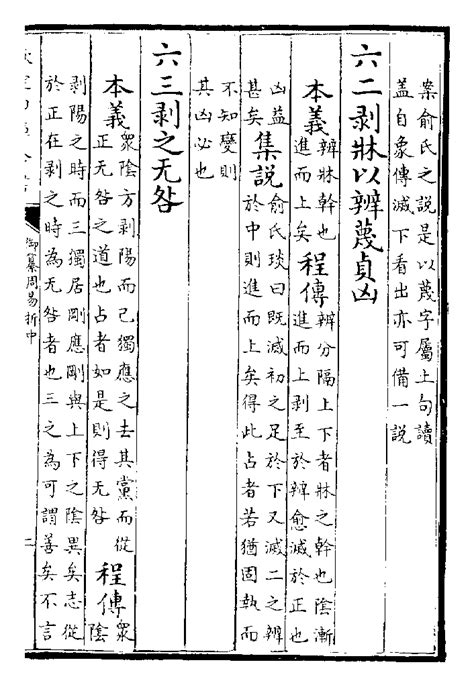 案俞氏之說是以蔑字屬上句讀
蓋自象傳滅下看出亦可備一說
六二剥牀以辨蔑貞凶
本義
辨牀幹也
進而上矣
程傳
辨分隔上下者牀之幹也陰漸
進而上剥至於辨愈滅於正也
凶益
甚矣
集説
俞氏琰曰既滅初之足於下又滅二之辨
於中則進而上矣得此占者若猶固執而
不知變則
其凶必也
六三剥之无咎
本義
衆陰方剥陽而己獨應之去其黨而從
正无咎之道也占者如是則得无咎
程傳
衆
陰
剥陽之時而三獨居剛應剛與上下之陰異矣志從
於正在剥之時為无咎者也三之為可謂善矣不言
御纂周易折中
二